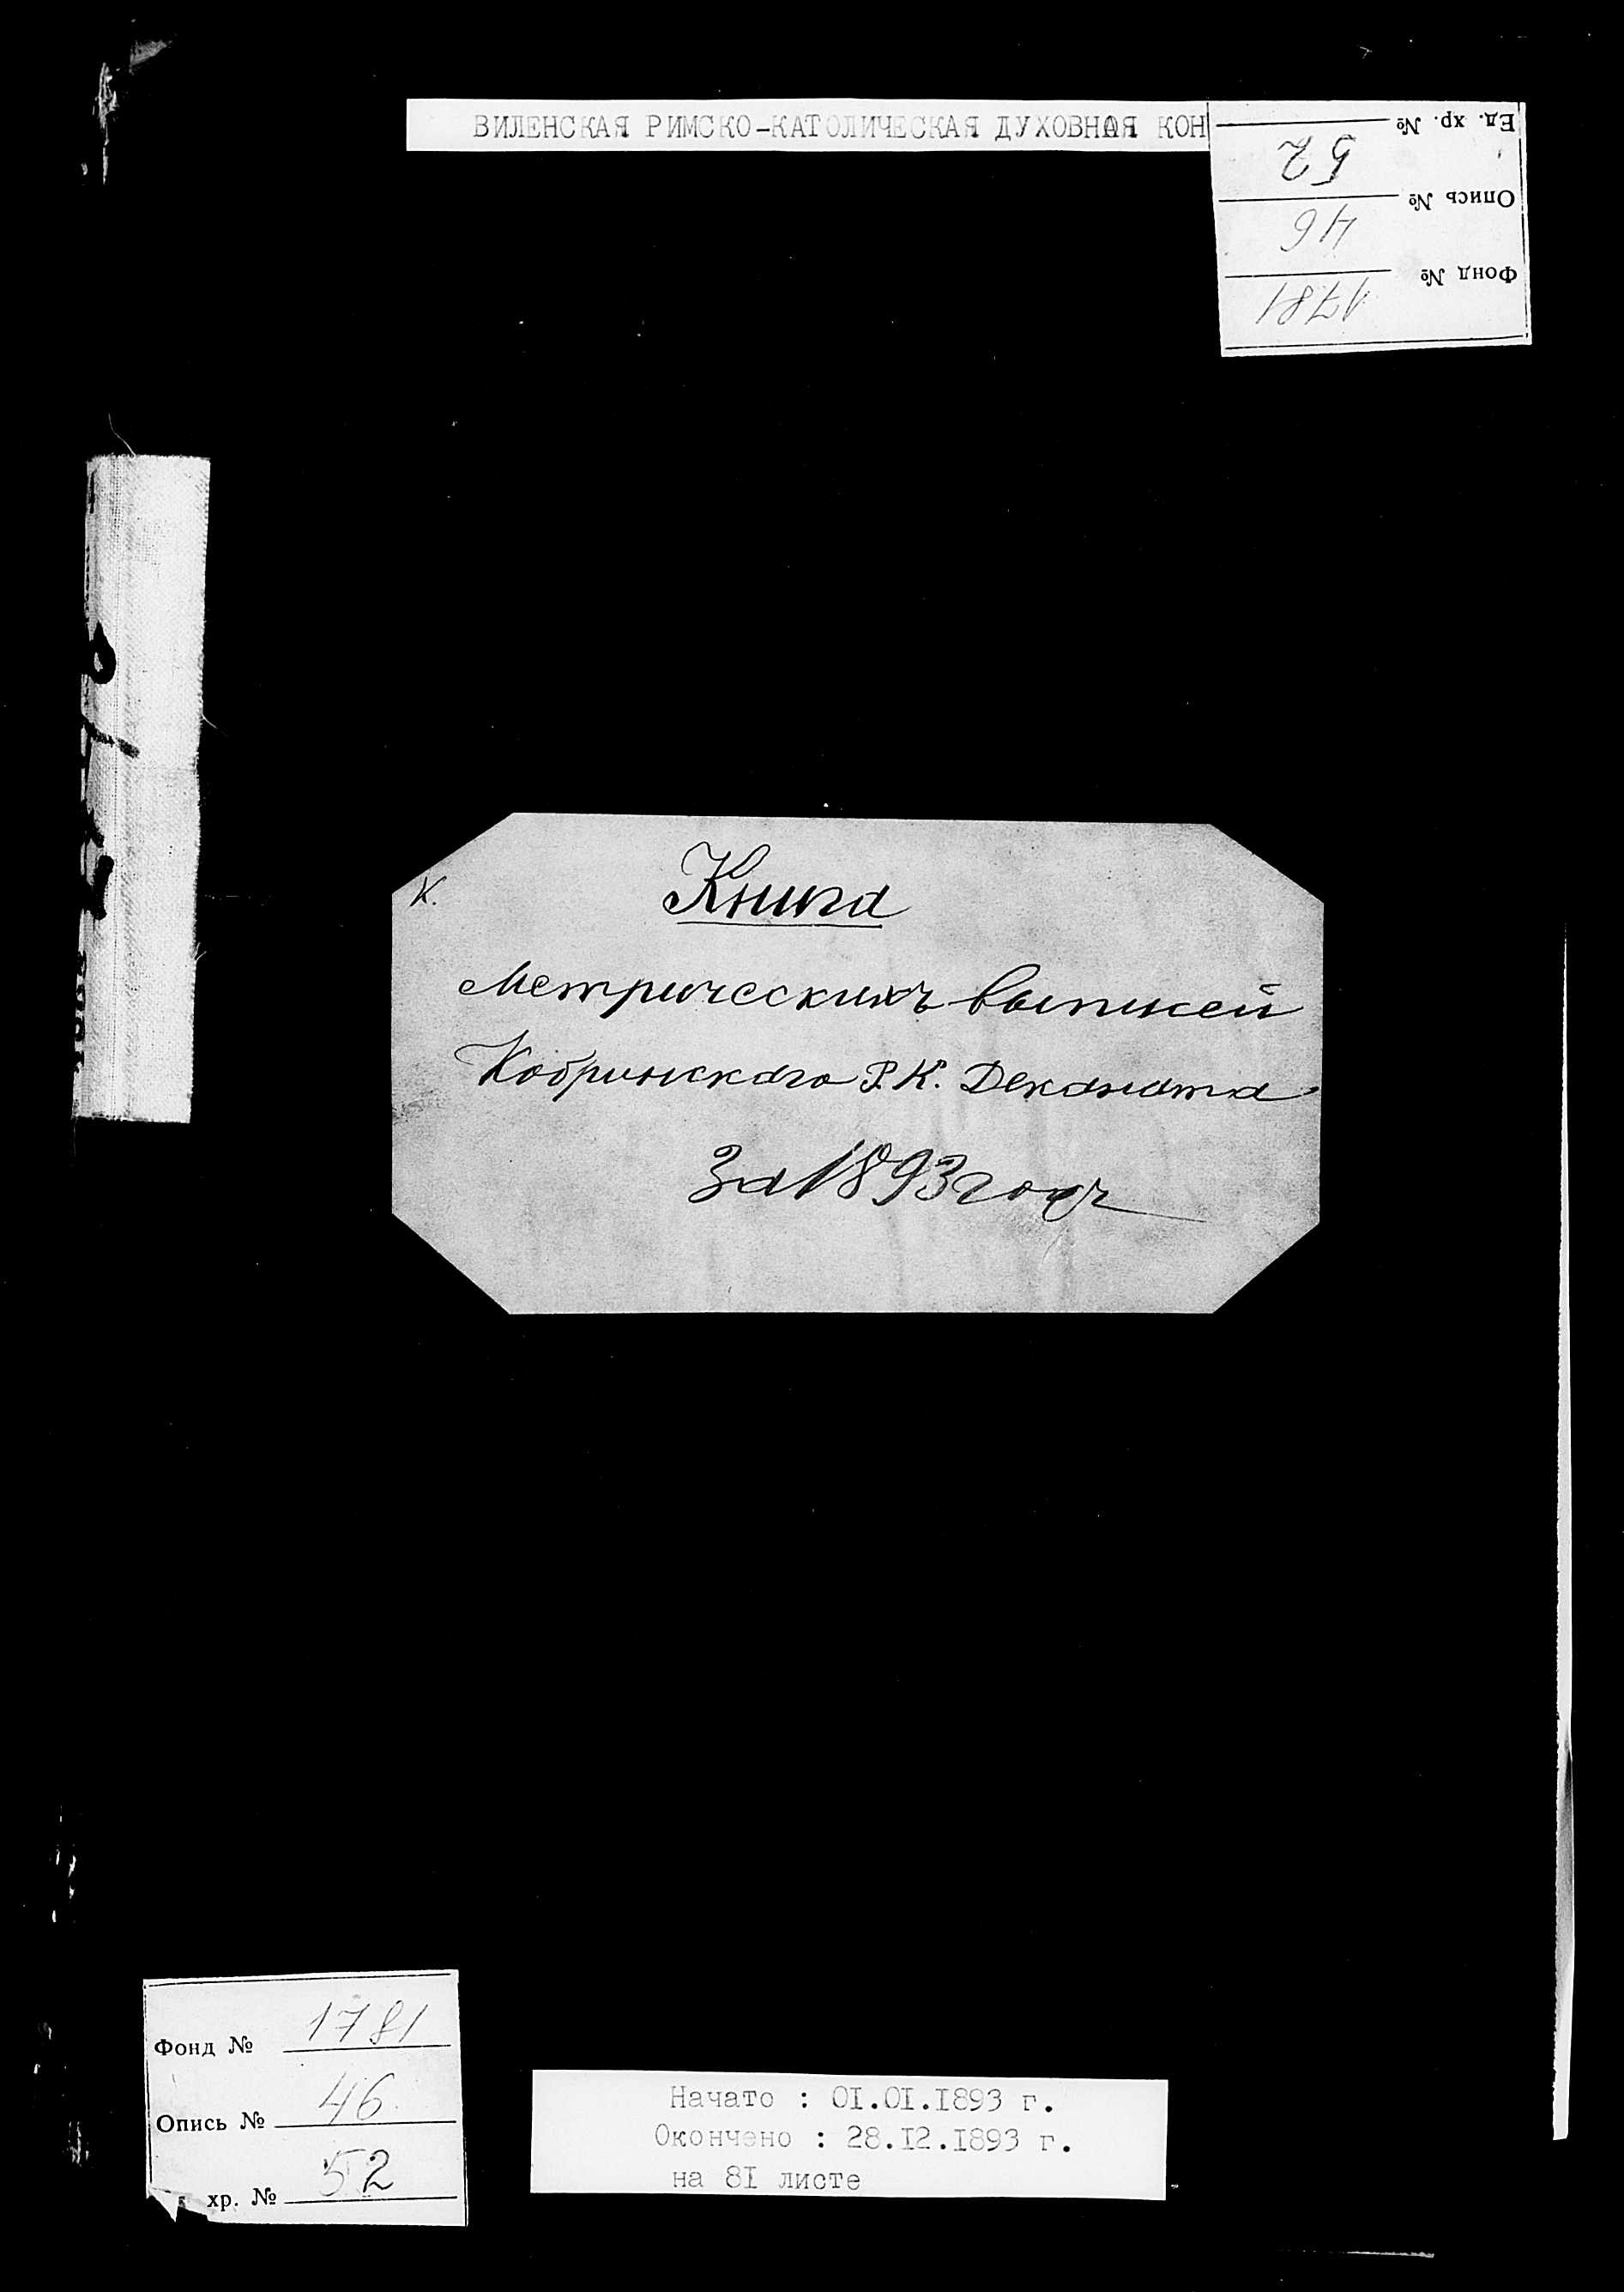 ВИЛЕНСКАЯ РИМСКО-КАТОЛИЧЕСКАЯ ДУХОВНАЯ КОН
Ед. хр. № 52
Опись № 46
Фонд № 1781
К.
Книга
Метрическихъ выписей
Кобринскаго Р. К. Деканата
За 1893 годъ
Фонд № 1781
Опись № 46
хр. № 52
Начато : 0I.0I.I893 г.
Окончено : 28.I2.I893 г.
на 8I листе